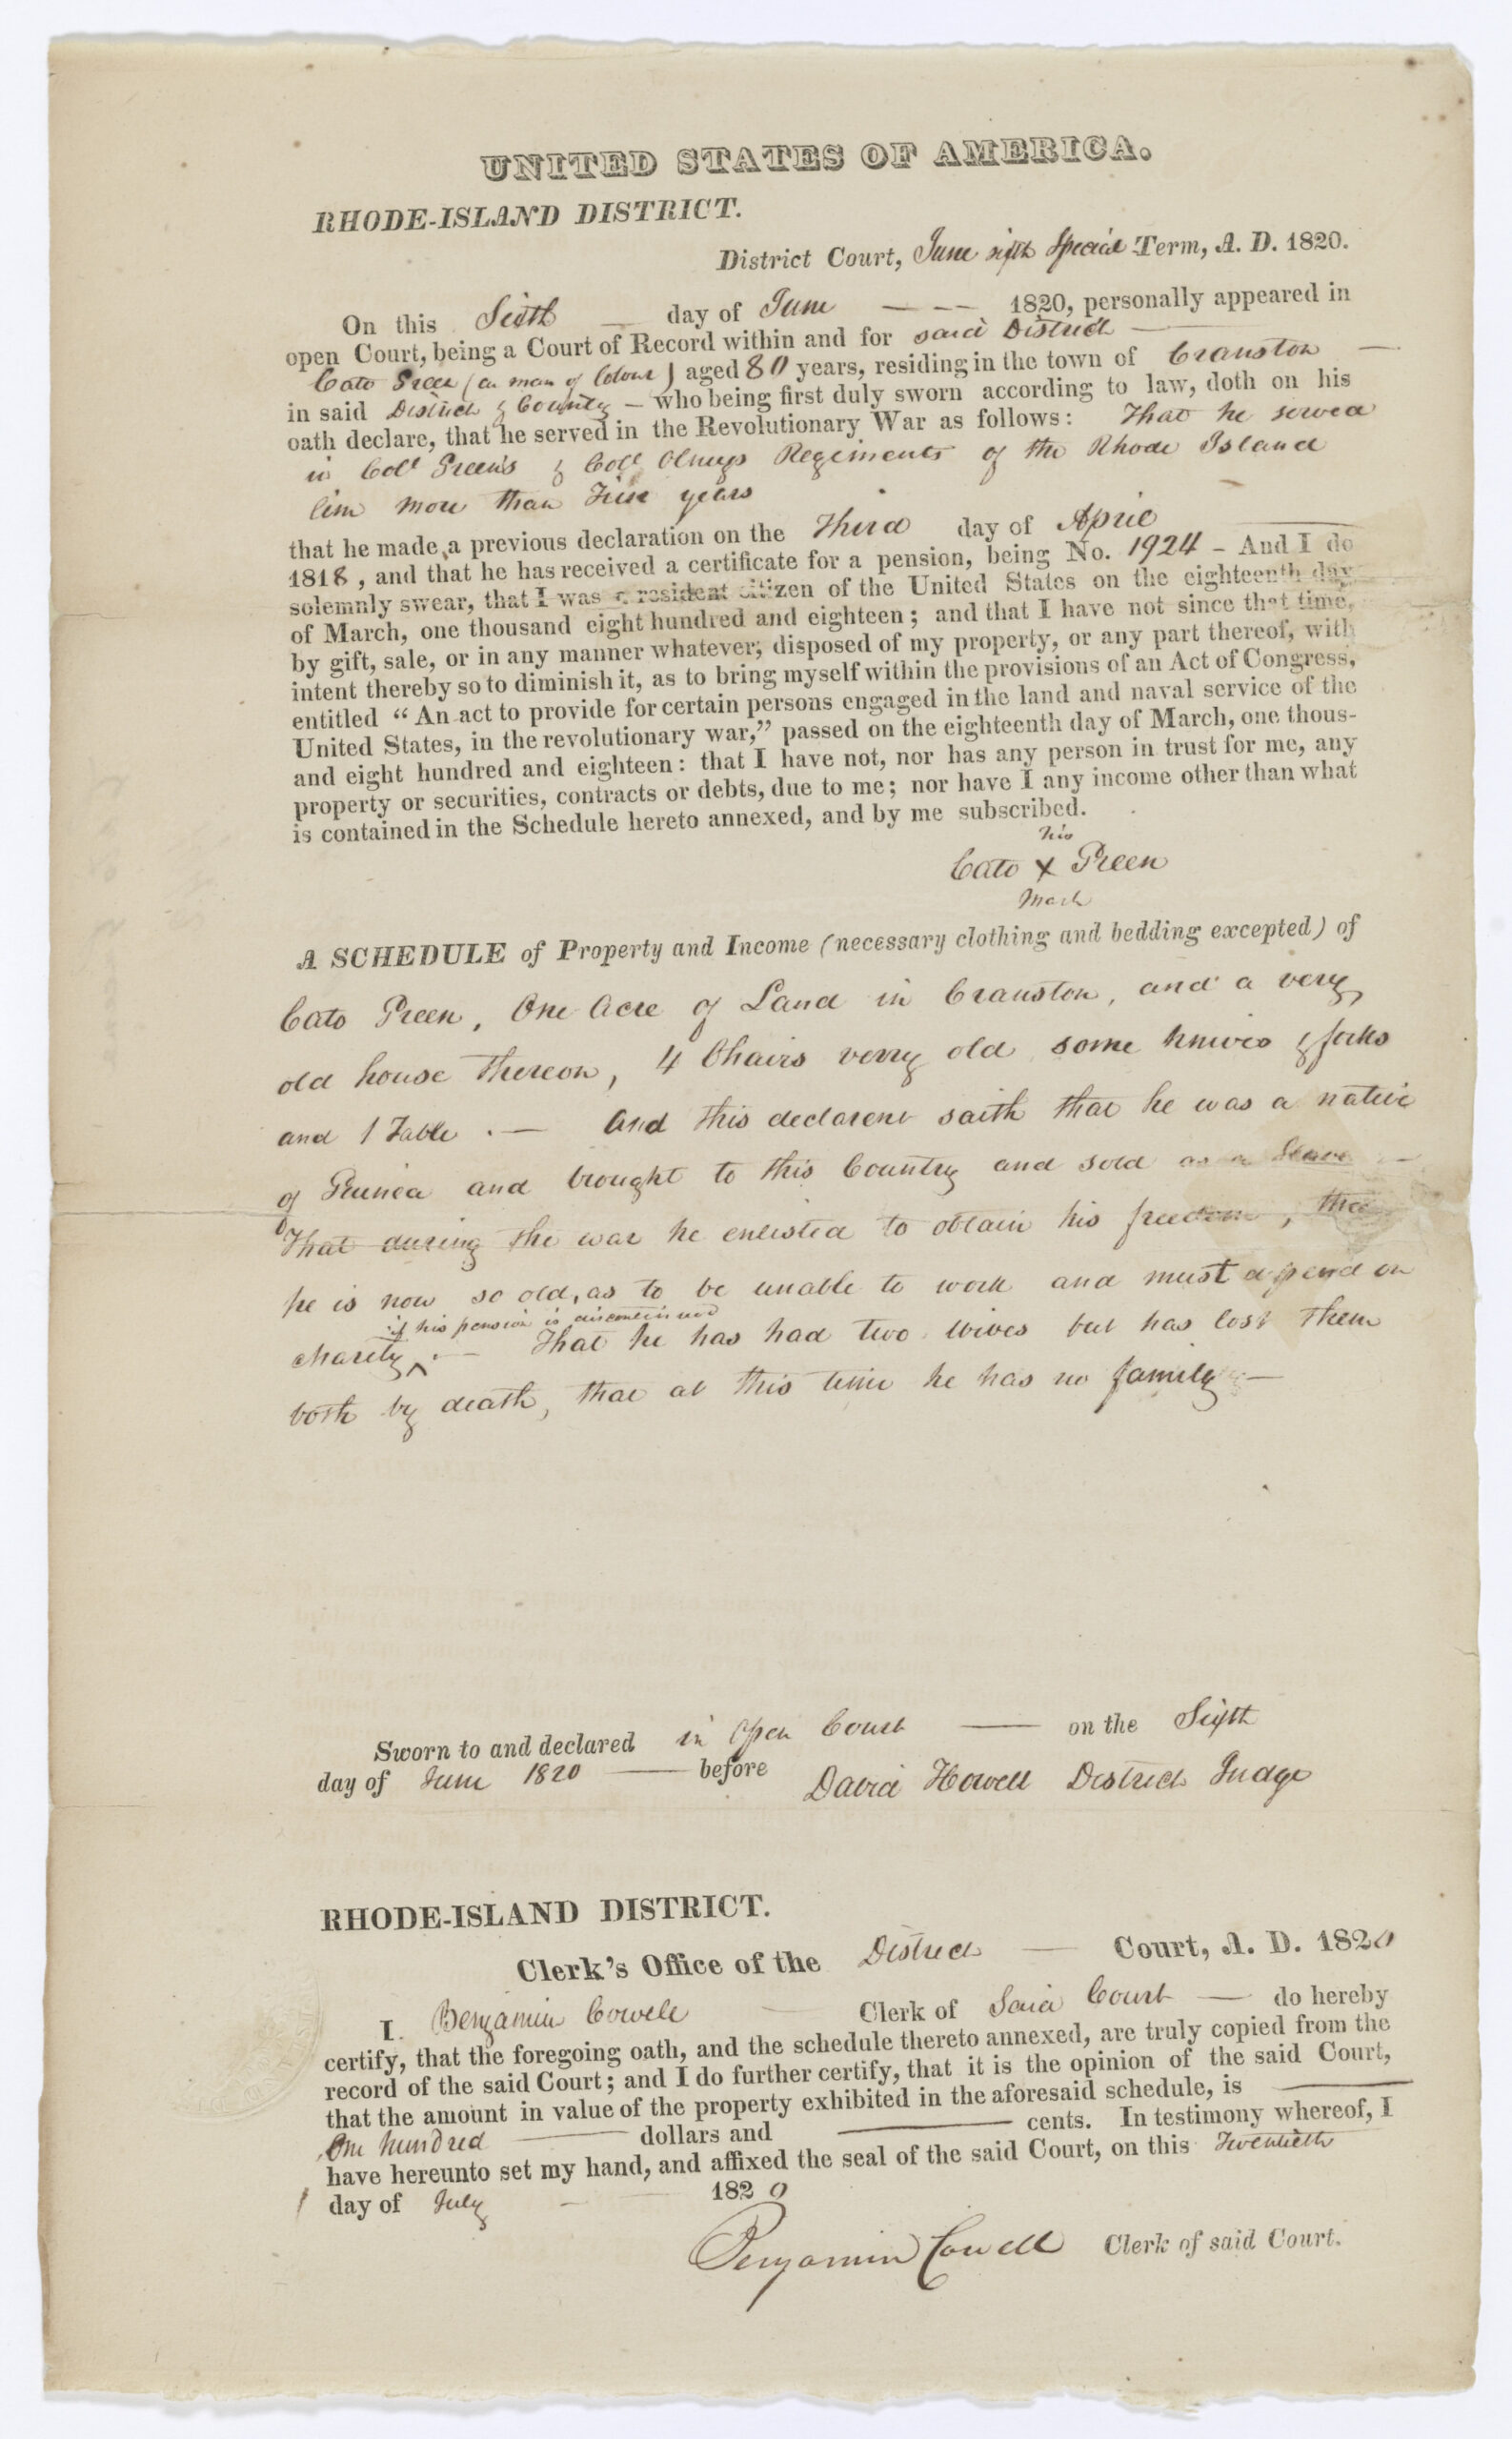 UNITED STATES OF AMERICA.
RHODE-ISLAND DISTRICT.
District Court, June sixth Special Term, A. D. 1820.
On this Sixth day of June — — 1820, personally appeared in
open Court, being a Court of Record within and for said District —
Cato Green (a man of Colour) aged 80 years, residing in the town of Cranston —
in said District & County — who being first duly sworn according to law, doth on his
oath declare, that he served in the Revolutionary War as follows: That he served
in Coll Green's & Coll Olneys Regiments of the Rhode Island
line more than Five years
that he made a previous declaration on the Third day of April
1818, and that he has received a certificate for a pension, being No. 1924 - And I do
solemnly swear, that I was a resident citizen of the United States on the eighteenth day
of March, one thousand eight hundred and eighteen; and that I have not since that time,
by gift, sale, or in any manner whatever, disposed of my property, or any part thereof, with
intent thereby so to diminish it, as to bring myself within the provisions of an Act of Congress,
entitled “An act to provide for certain persons engaged in the land and naval service of the
United States, in the revolutionary war,” passed on the eighteenth day of March, one thous-
and eight hundred and eighteen: that I have not, nor has any person in trust for me, any
property or securities, contracts or debts, due to me; nor have I any income other than what
is contained in the Schedule hereto annexed, and by me subscribed.
his
Cato X Green
Mark
A SCHEDULE of Property and Income (necessary clothing and bedding excepted) of
Cato Green, One Acre of Land in Cranston, and a very
old house thereon, 4 Chairs verry old some knives & forks
and 1 Table .— And this declarent saith that he was a native
of Guinea and brought to this Country and sold as a Slave —
That during the war he enlisted to obtain his freedom, that
he is now so old, as to be unable to work and must depend on
if his pension is discontinued
charity ^ .— That he has had two wives but has lost them
both by death, that at this time he has no family —
Sworn to and declared in Open Court — on the Sixth
day of June 1820 — before David Howell District Judge
RHODE-ISLAND DISTRICT.
Clerk's Office of the District — Court, A. D. 1820
I. Benjamin Cowell Clerk of Said Court — do hereby
certify, that the foregoing oath, and the schedule thereto annexed, are truly copied from the
record of the said Court; and I do further certify, that it is the opinion of the said Court,
that the amount in value of the property exhibited in the aforesaid schedule, is —
One hundred — dollars and — cents. In testimony whereof, I
have hereunto set my hand, and affixed the seal of the said Court, on this Twentieth
day of July — 1820
Benjamin Cowell Clerk of said Court.